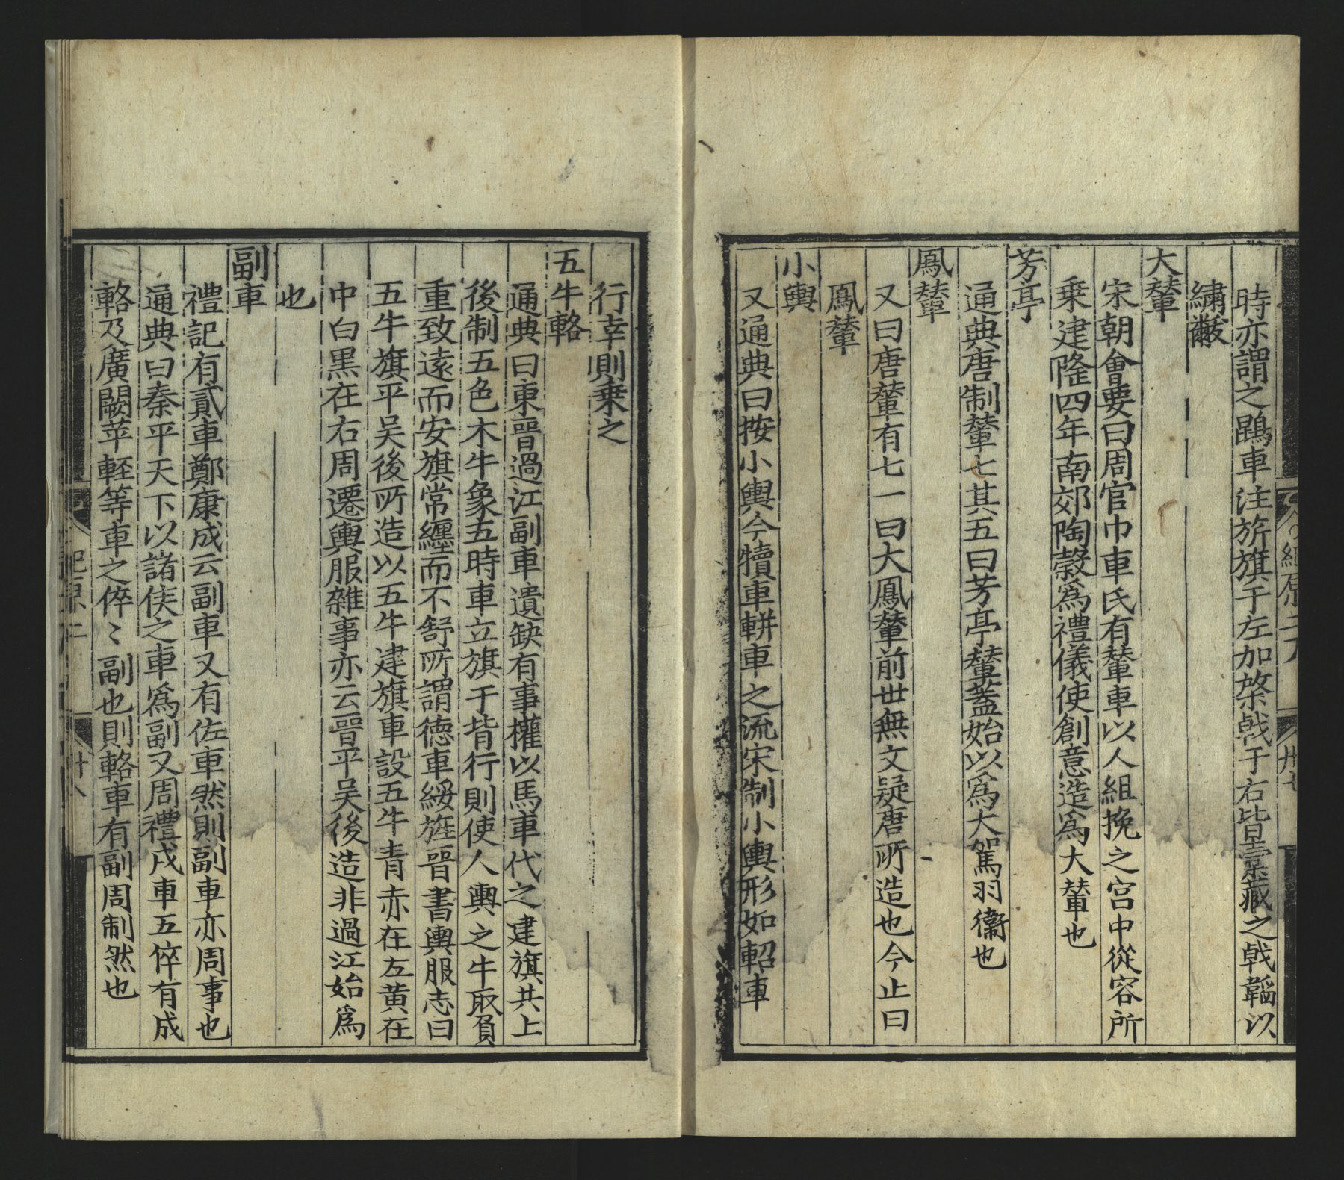 時亦謂之鷄車注旂旗于左加棨戟于右皆櫜藏之戟韜以
繡黻
大輦
宋朝會要曰周官巾車氏有輦車以人組挽之宫中從容所
乗建隆四年南郊陶穀爲禮儀使創意造爲大輦也
芳亭
通典唐制輦七其五曰芳亭輦蓋始以爲大駕羽衞也
鳳輦
又曰唐輦有七一曰大鳳輦前世無文疑唐所造也今止曰
鳳輦
小輿
又通典曰按小輿今犢車軿車之流宋制小輿形如軺車
行幸則乗之
五牛輅
通典曰東晉過江副車遺缺有事權以馬車代之建旗共上
後制五色木牛象五時車立旗于背行則使人輿之牛取負
重致遠而安旗常纏而不舒所謂德車綏旌晉書輿服志曰
五牛旗平吴後所造以五牛建旗車設五牛青赤在左黄在
中白黑在右周遷輿服雜事亦云晉平吴後造非過江始爲
也
副車
禮記有貳車鄭康成云副車又有佐車然則副車亦周事也
通典曰秦平天下以諸侯之車爲副又周禮戎車五倅有成
輅及廣闕苹輕等車之倅〻副也則輅車有副周制然也
紀原二
十八